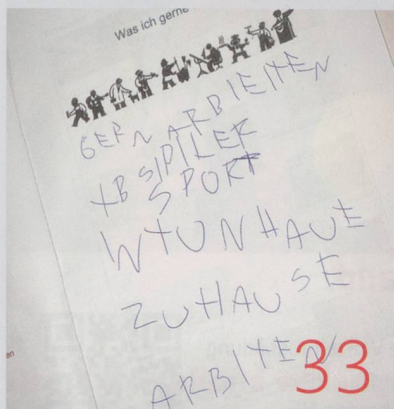 Was ich gerne
GERN ARBIEITEN
XB SPILER
SPORT
WTUNHAUE
ZUHAUSE
ARBITEN
en
33